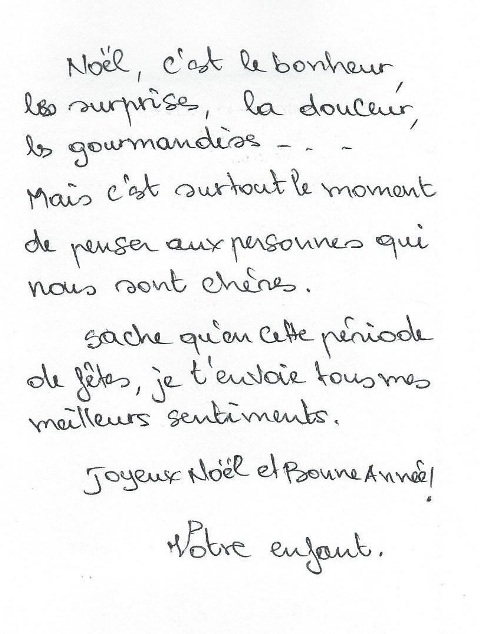 Noël, c'est le bonheur,
les surprises, la douceur,
les gourmandises - - -
Mais c'est surtout le moment
de penser aux personnes qui
nous sont chères.
Sache qu'en cette période
de fêtes, je t'envoie tous mes
meilleurs sentiments.
Joyeux Noël et Bonne Année!
Votre enfant.